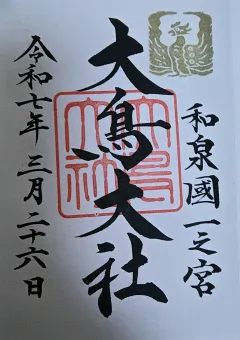 和泉國一之宮
大鳥大社
大鳥大社
令和七年三月二十六日